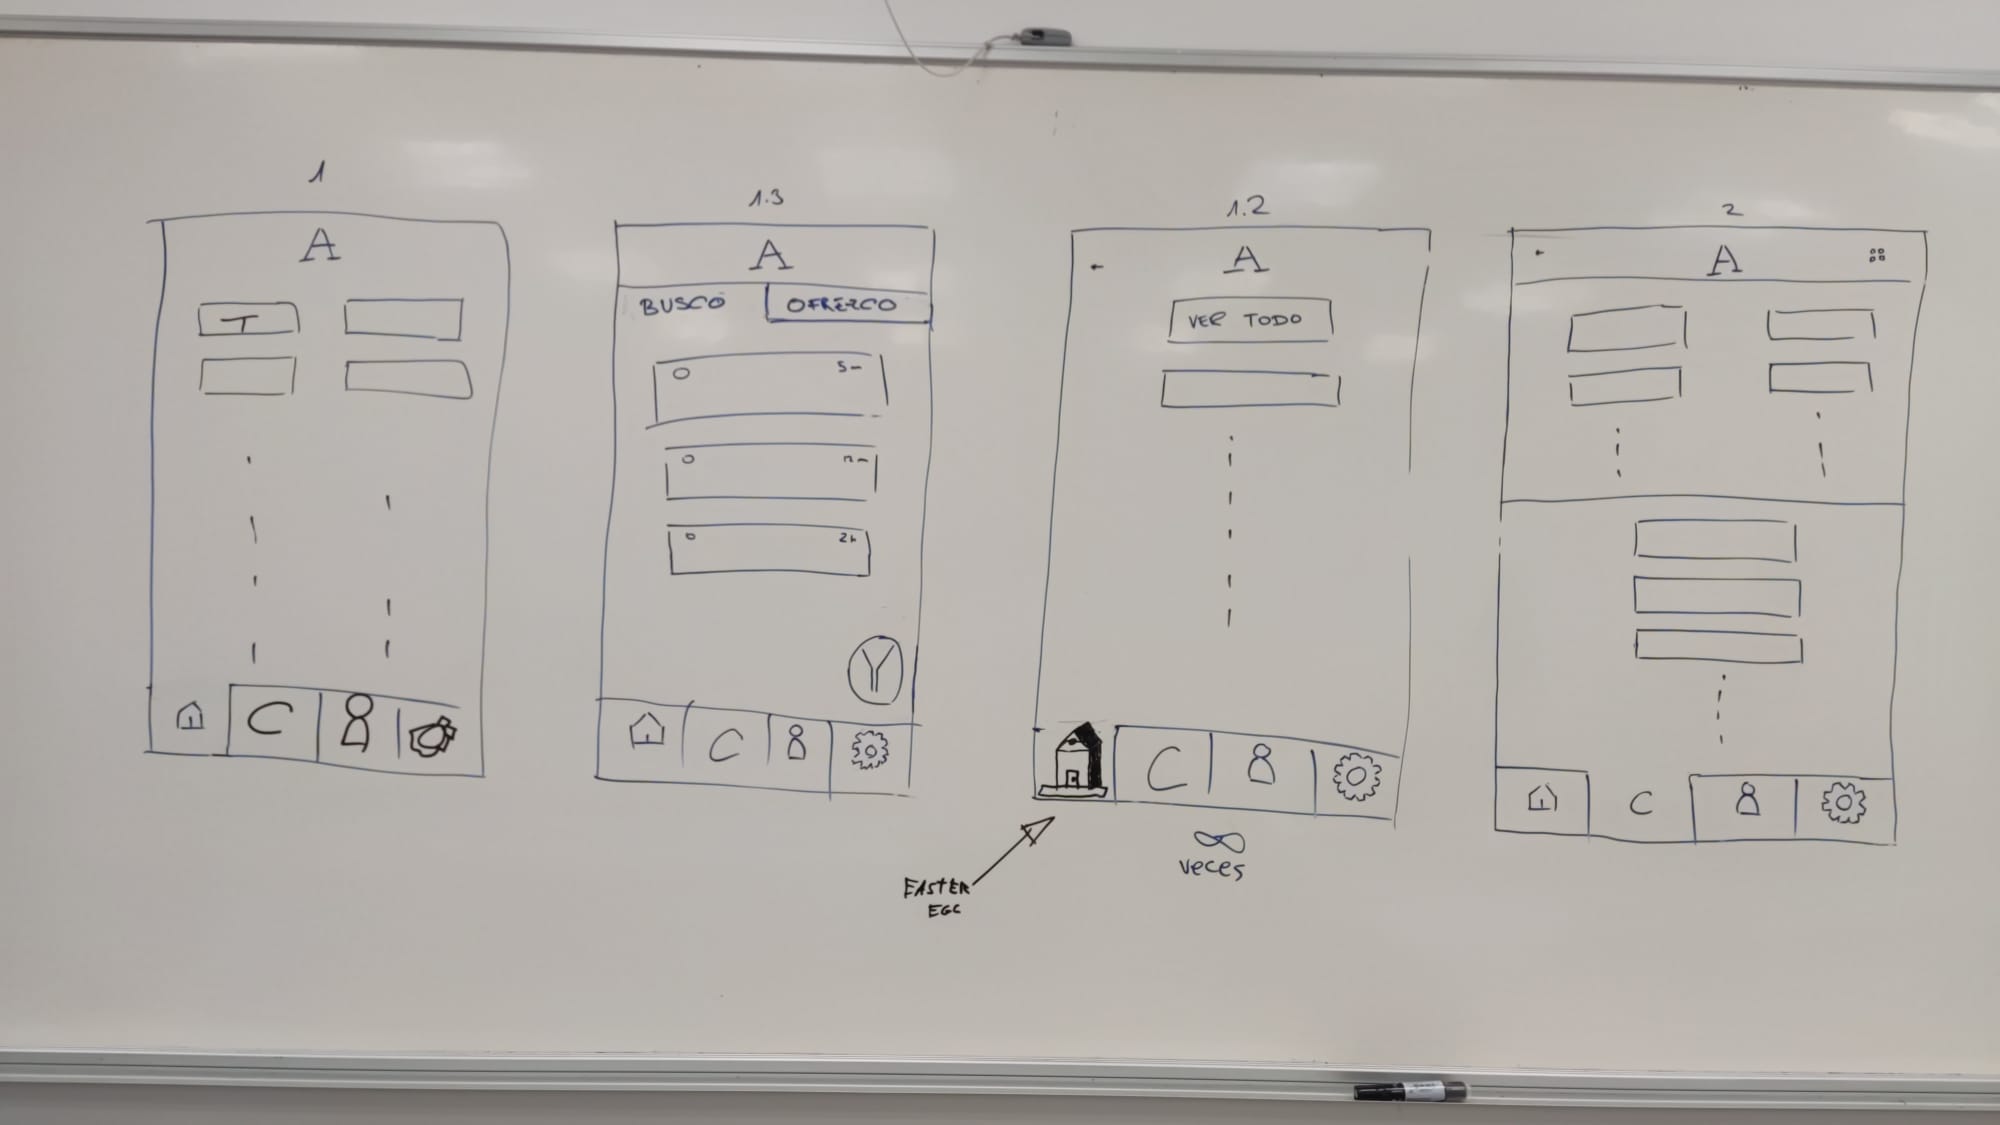 1
A
T
C
1.3
A
BUSCO OFREZCO
5m
12m
2h
Y
C
1.2
A
VER TODO
C
∞
veces
EASTER
EGG
2
A
C